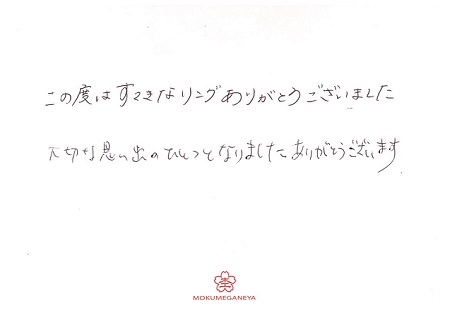 この度はすてきなリングありがとうございました
大切な思い出のひとつとなりましたありがとうございます
MOKUMEGANEYA